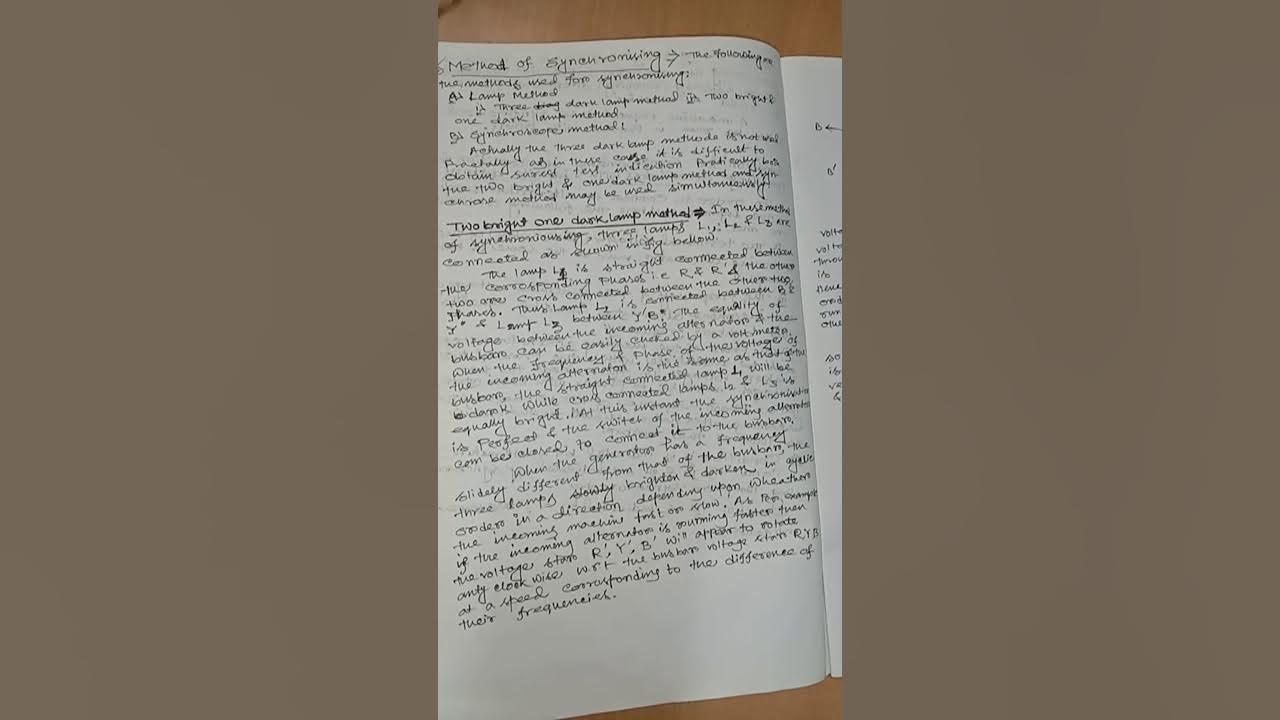 Method of Synchronising ⇒ The following are
the methods used for synchronising:
A) Lamp Method
i) Three dark lamp method ii) Two bright &
one dark lamp method
B) Synchroscope method:
Actually the three dark lamp methode is not used
Practally as in these case it is difficult to
obtain surest test indication Pratically both
the two bright & one dark lamp method and syn-
chrose method may be used simultaneously
Two bright one dark lamp method ⇒ In these metho
of synchroniousing, three lamps L1, L2 & L3 are
connected as shown in fig bellow.
The lamp L1 is straight connected between
the corrosponding phases i.e R & R' & the other
two are cross connected between the other two
Phases. Thus Lamp L2 is connected between B &
Y' & Lamp L3 between Y B'. The equality of
voltage between the incoming alternator & the
busbars can be easily cheked by a voltmeter.
When the frequency & phase of the voltage of
the incoming alternator is the same as that of the
busbars, the straight connected lamp L1 will be
dark while cross connected lamps L2 & L3 is
equally bright. At this instant the synchronisatio
is Perfect & the switch of the incoming alternator
can be closed to connect it to the busbars.
When the generator has a frequency
slidely different from that of the busbars, the
three lamps slowly brighten & darken in cyclic
orders in a direction depending upon wheathers
the incoming machine fast or slow. As for example
if the incoming alternator is running faster then
the voltage stars R', Y', B' will appear to rotate
anty clock wise w.r.t the busbars voltage stars RYB
at a speed corrosponding to the difference of
their frequencies.
B
B'
volta
volt
throu
is
othe
so
is
ve
&